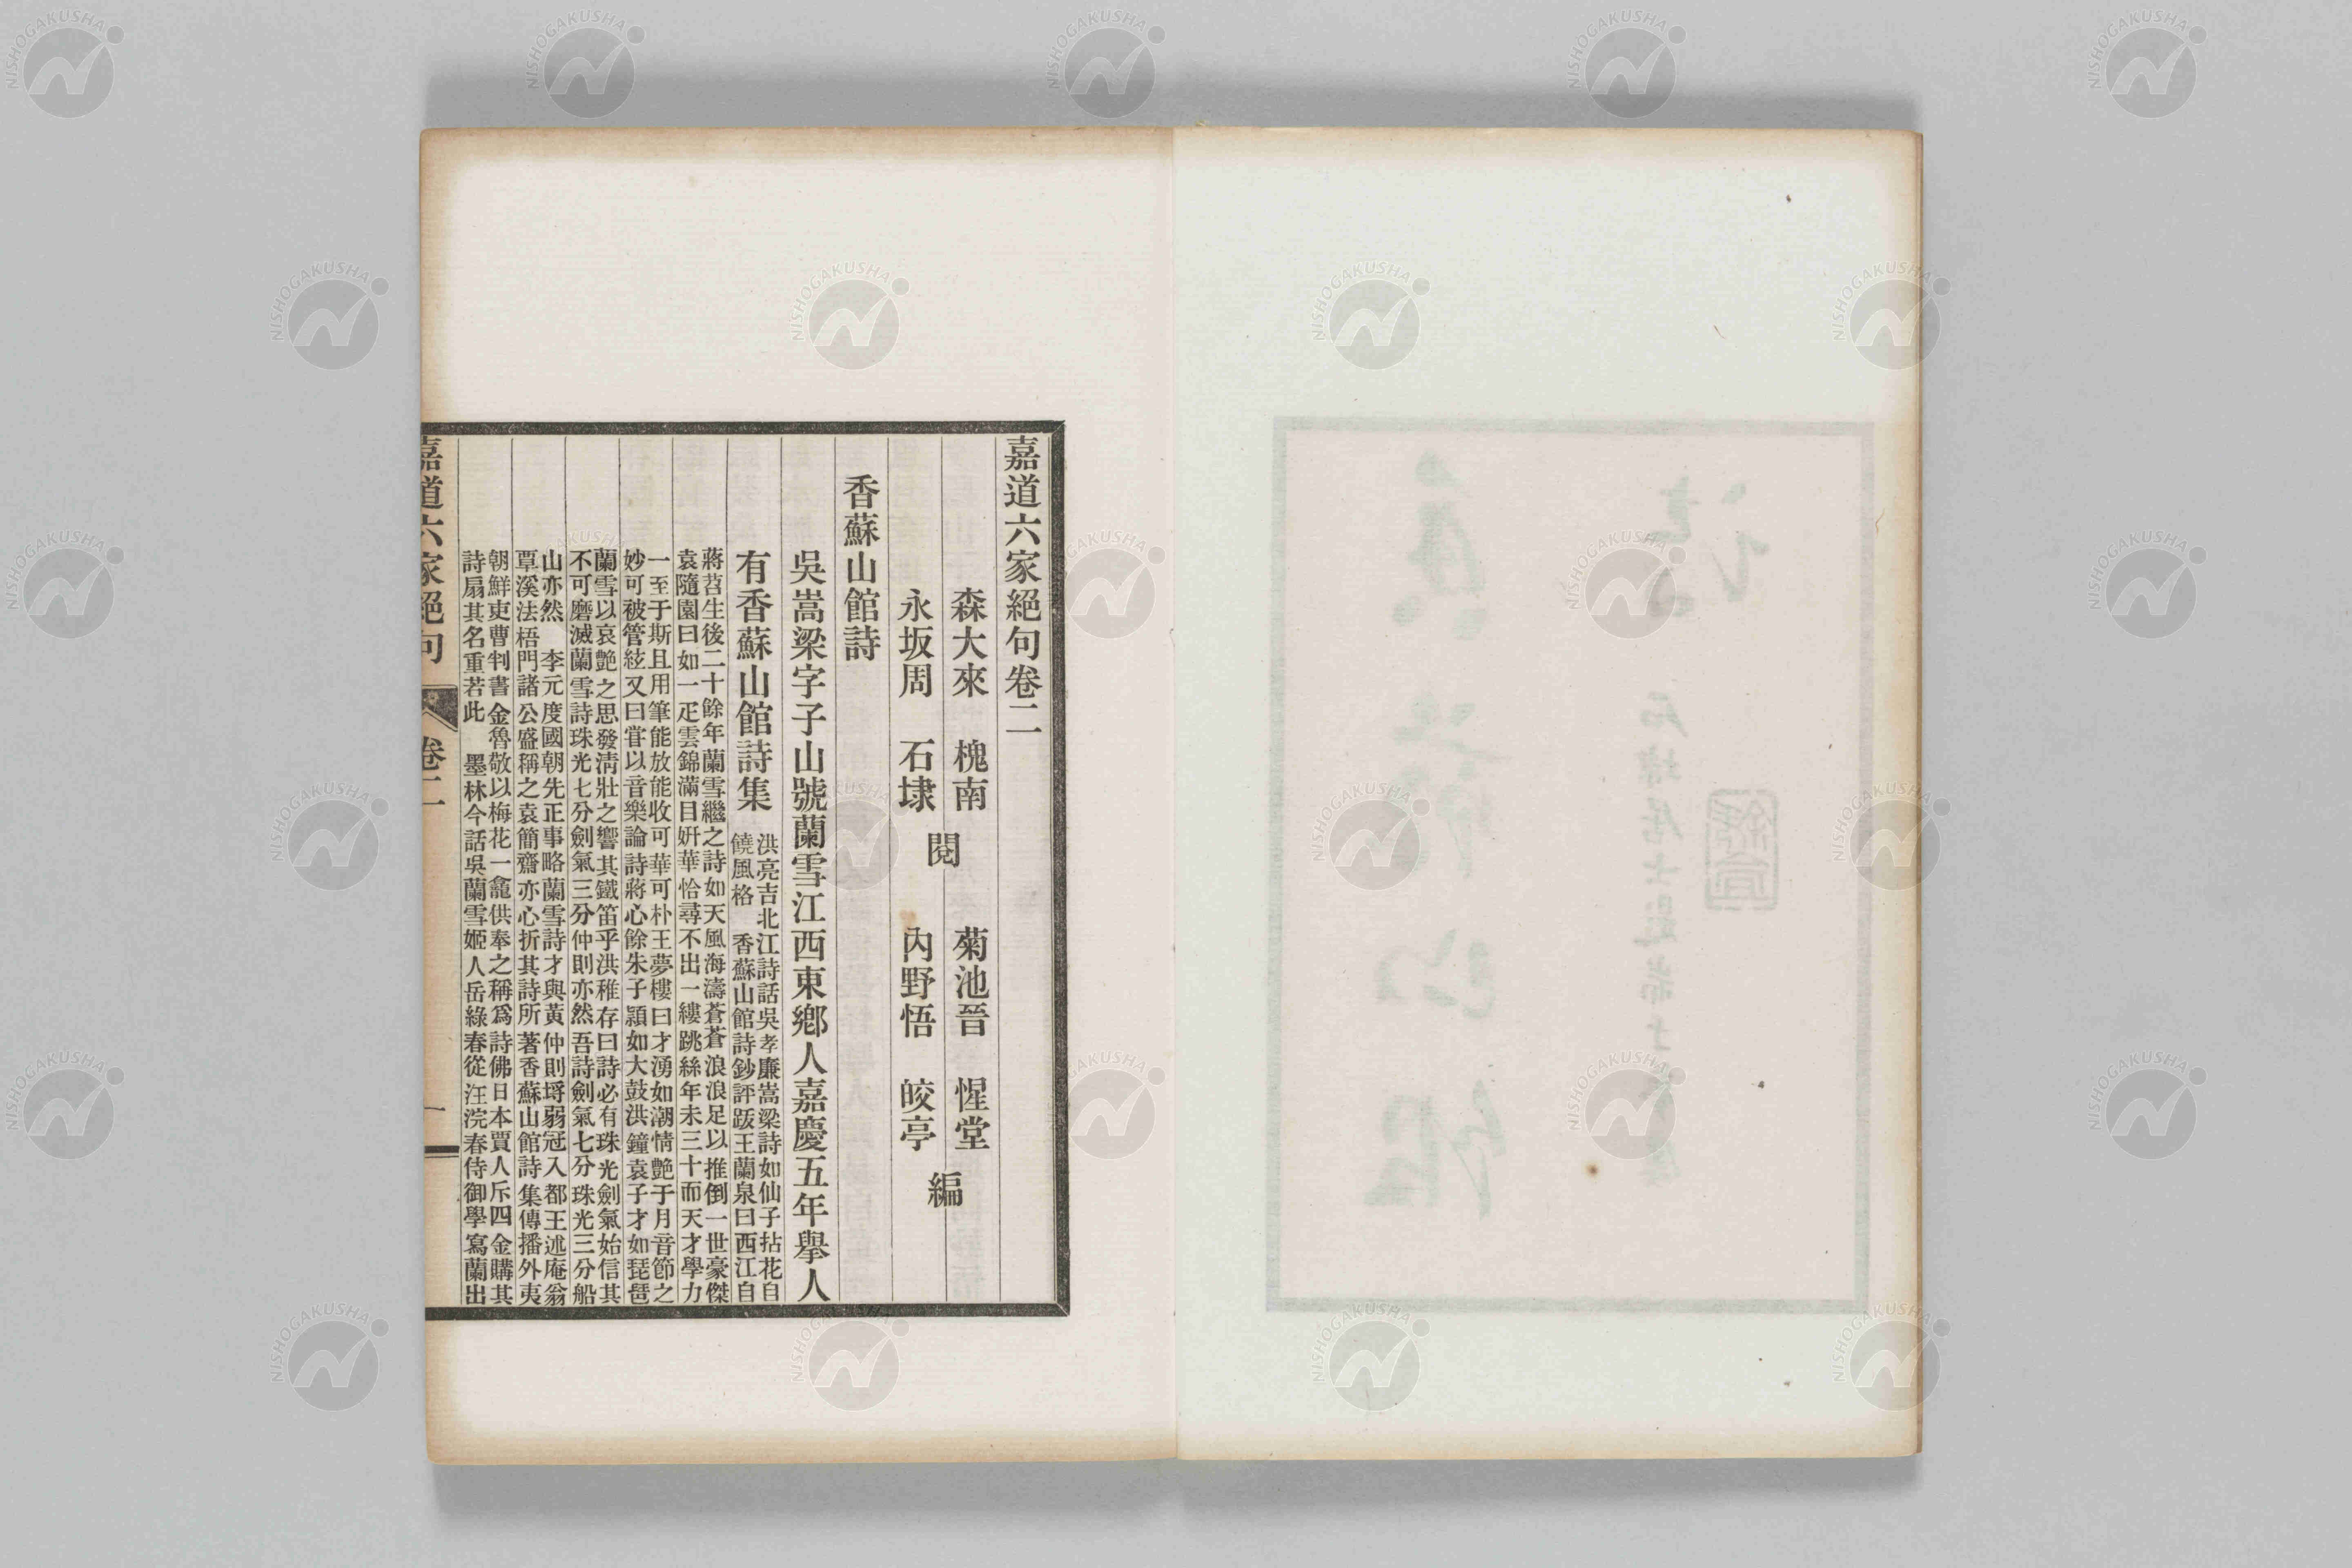 嘉道六家絕句卷二
森大來 槐南
永坂周 石埭
閱
菊池晉 惺堂
內野悟 皎亭
編
香蘇山館詩
吳嵩梁字子山號蘭雪江西東鄉人嘉慶五年舉人
有香蘇山館詩集
洪亮吉北江詩話吳孝廉嵩梁詩如仙子拈花自
饒風格 香蘇山館詩鈔評跋王蘭泉曰西江自
蔣苕生後二十餘年蘭雪繼之詩如天風海濤蒼蒼浪浪足以推倒一世豪傑
袁隨園曰如一疋雲錦滿目姸華恰尋不出一縷跳絲年未三十而天才學力
一至于斯且用筆能放能收可華可朴王夢樓曰才湧如潮情艶于月音節之
妙可被管絃又曰甞以音樂論詩蔣心餘朱子頴如大鼓洪鐘袁子才如琵琶
蘭雪以哀艶之思發淸壯之響其鐵笛乎洪稚存曰詩必有珠光劍氣始信其
不可磨滅蘭雪詩珠光七分劍氣三分仲則亦然吾詩劍氣七分珠光三分船
山亦然 李元度國朝先正事略蘭雪詩才與黃仲則埒弱冠入都王述庵翁
覃溪法梧門諸公盛稱之袁簡齋亦心折其詩所著香蘇山館詩集傳播外夷
朝鮮吏曹判書金魯敬以梅花一龕供奉之稱爲詩佛日本賈人斥四金購其
詩扇其名重若此 墨林今話吳蘭雪姬人岳綠春從汪浣春侍御學寫蘭出
嘉道六家絕句 卷二 一
NISHOGAKUSHA